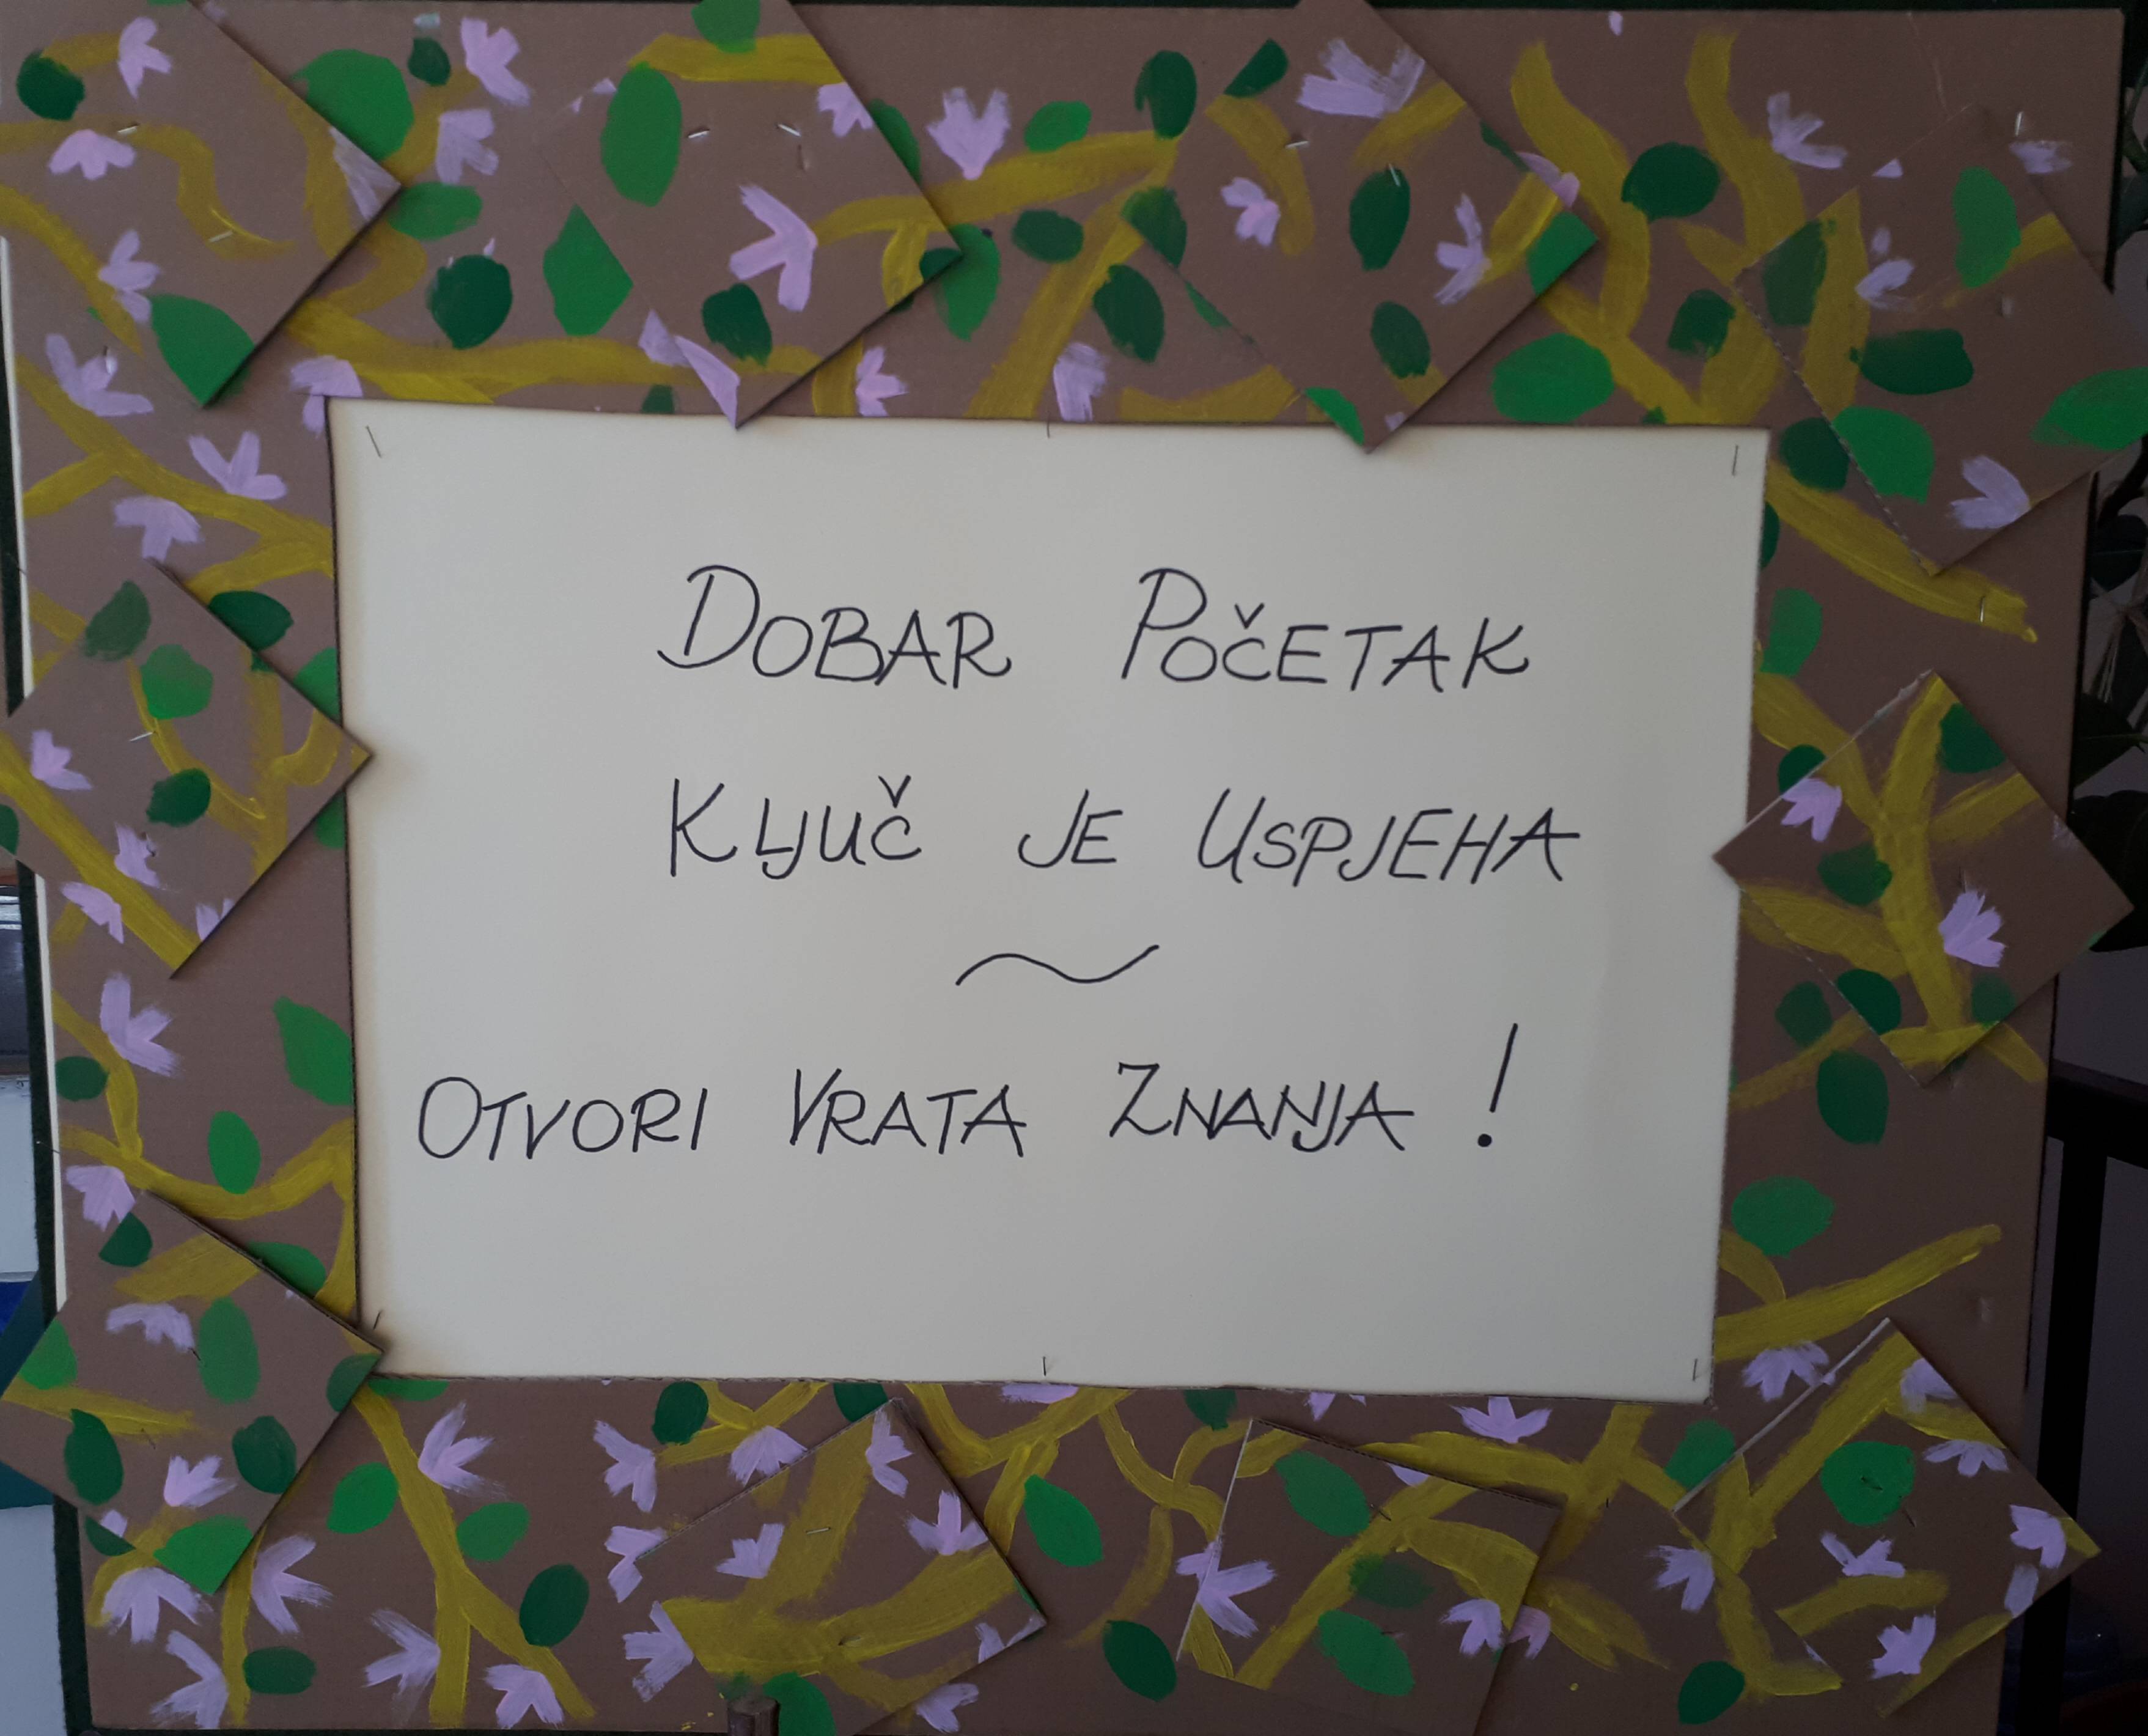 DOBAR POČETAK
KLJUČ JE USPJEHA
~
OTVORI VRATA ZNANJA!